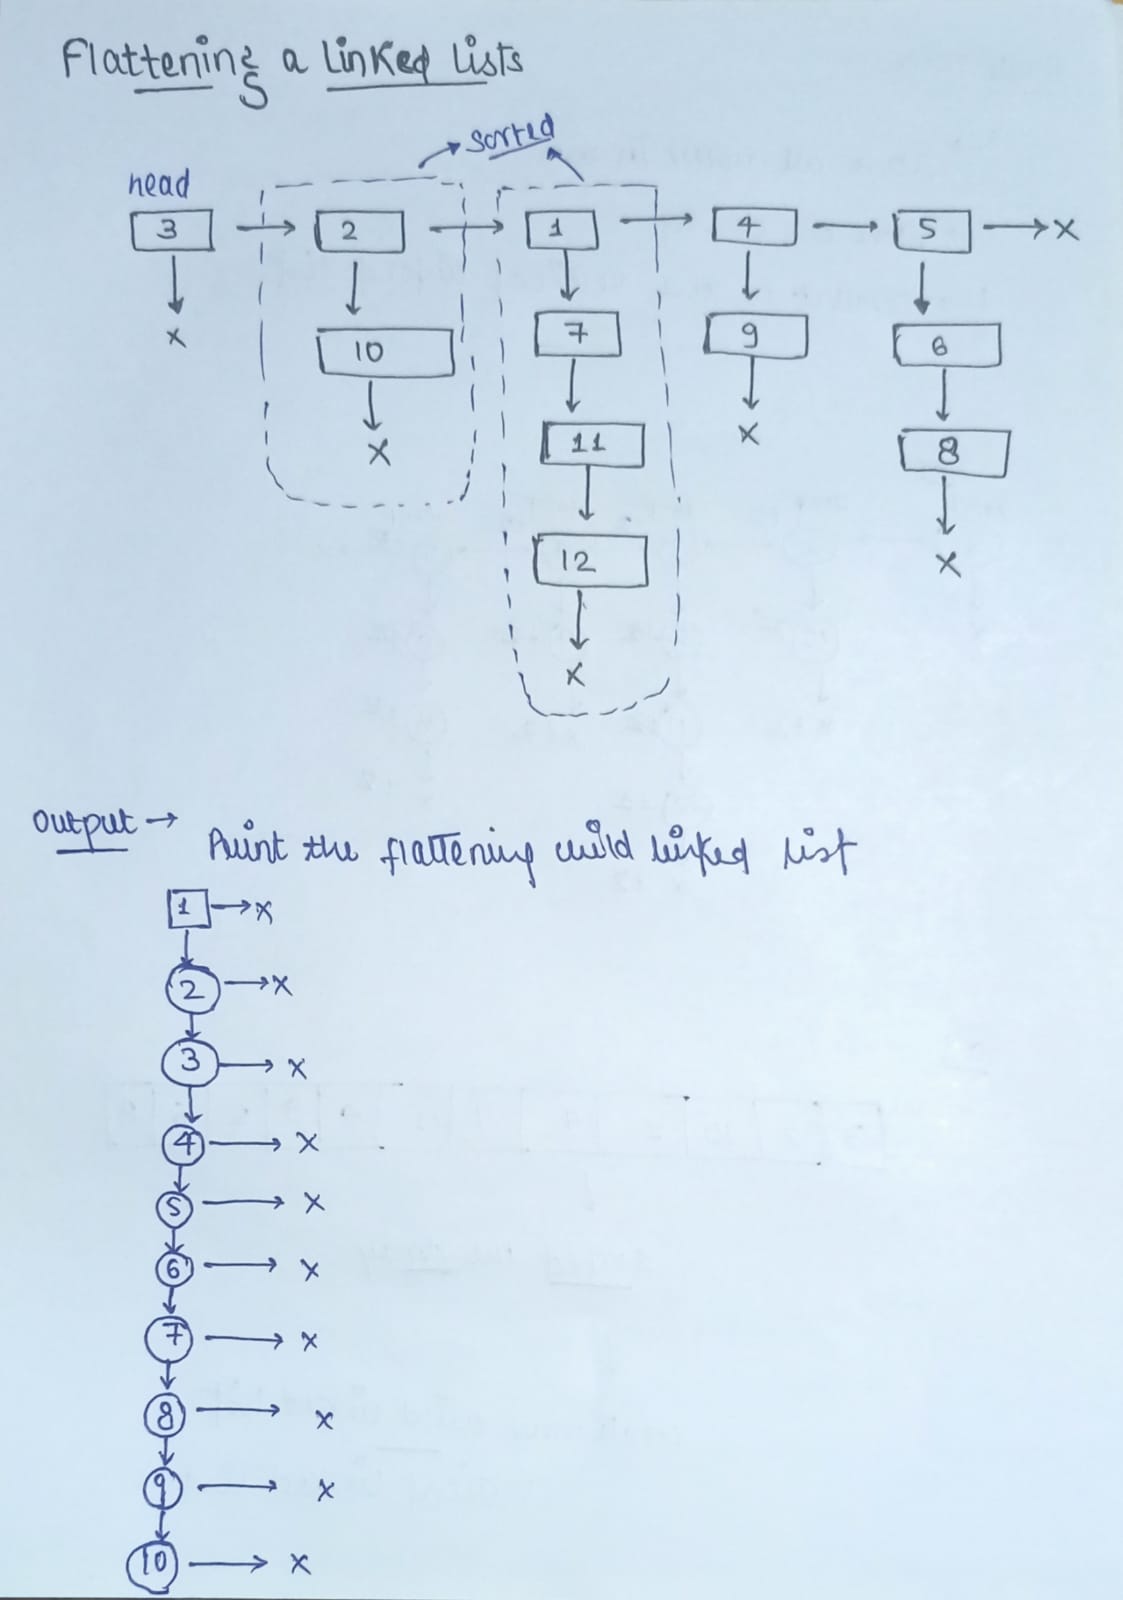 Flattening a Linked Lists
sorted
head
3 → 2 → 1 → 4 → 5 → x
x 10 7 9 6
x 11 x 8
12 x
x
Output →
Print the flattening child linked list
1 → x
2 → x
3 → x
4 → x
5 → x
6 → x
7 → x
8 → x
9 → x
10 → x